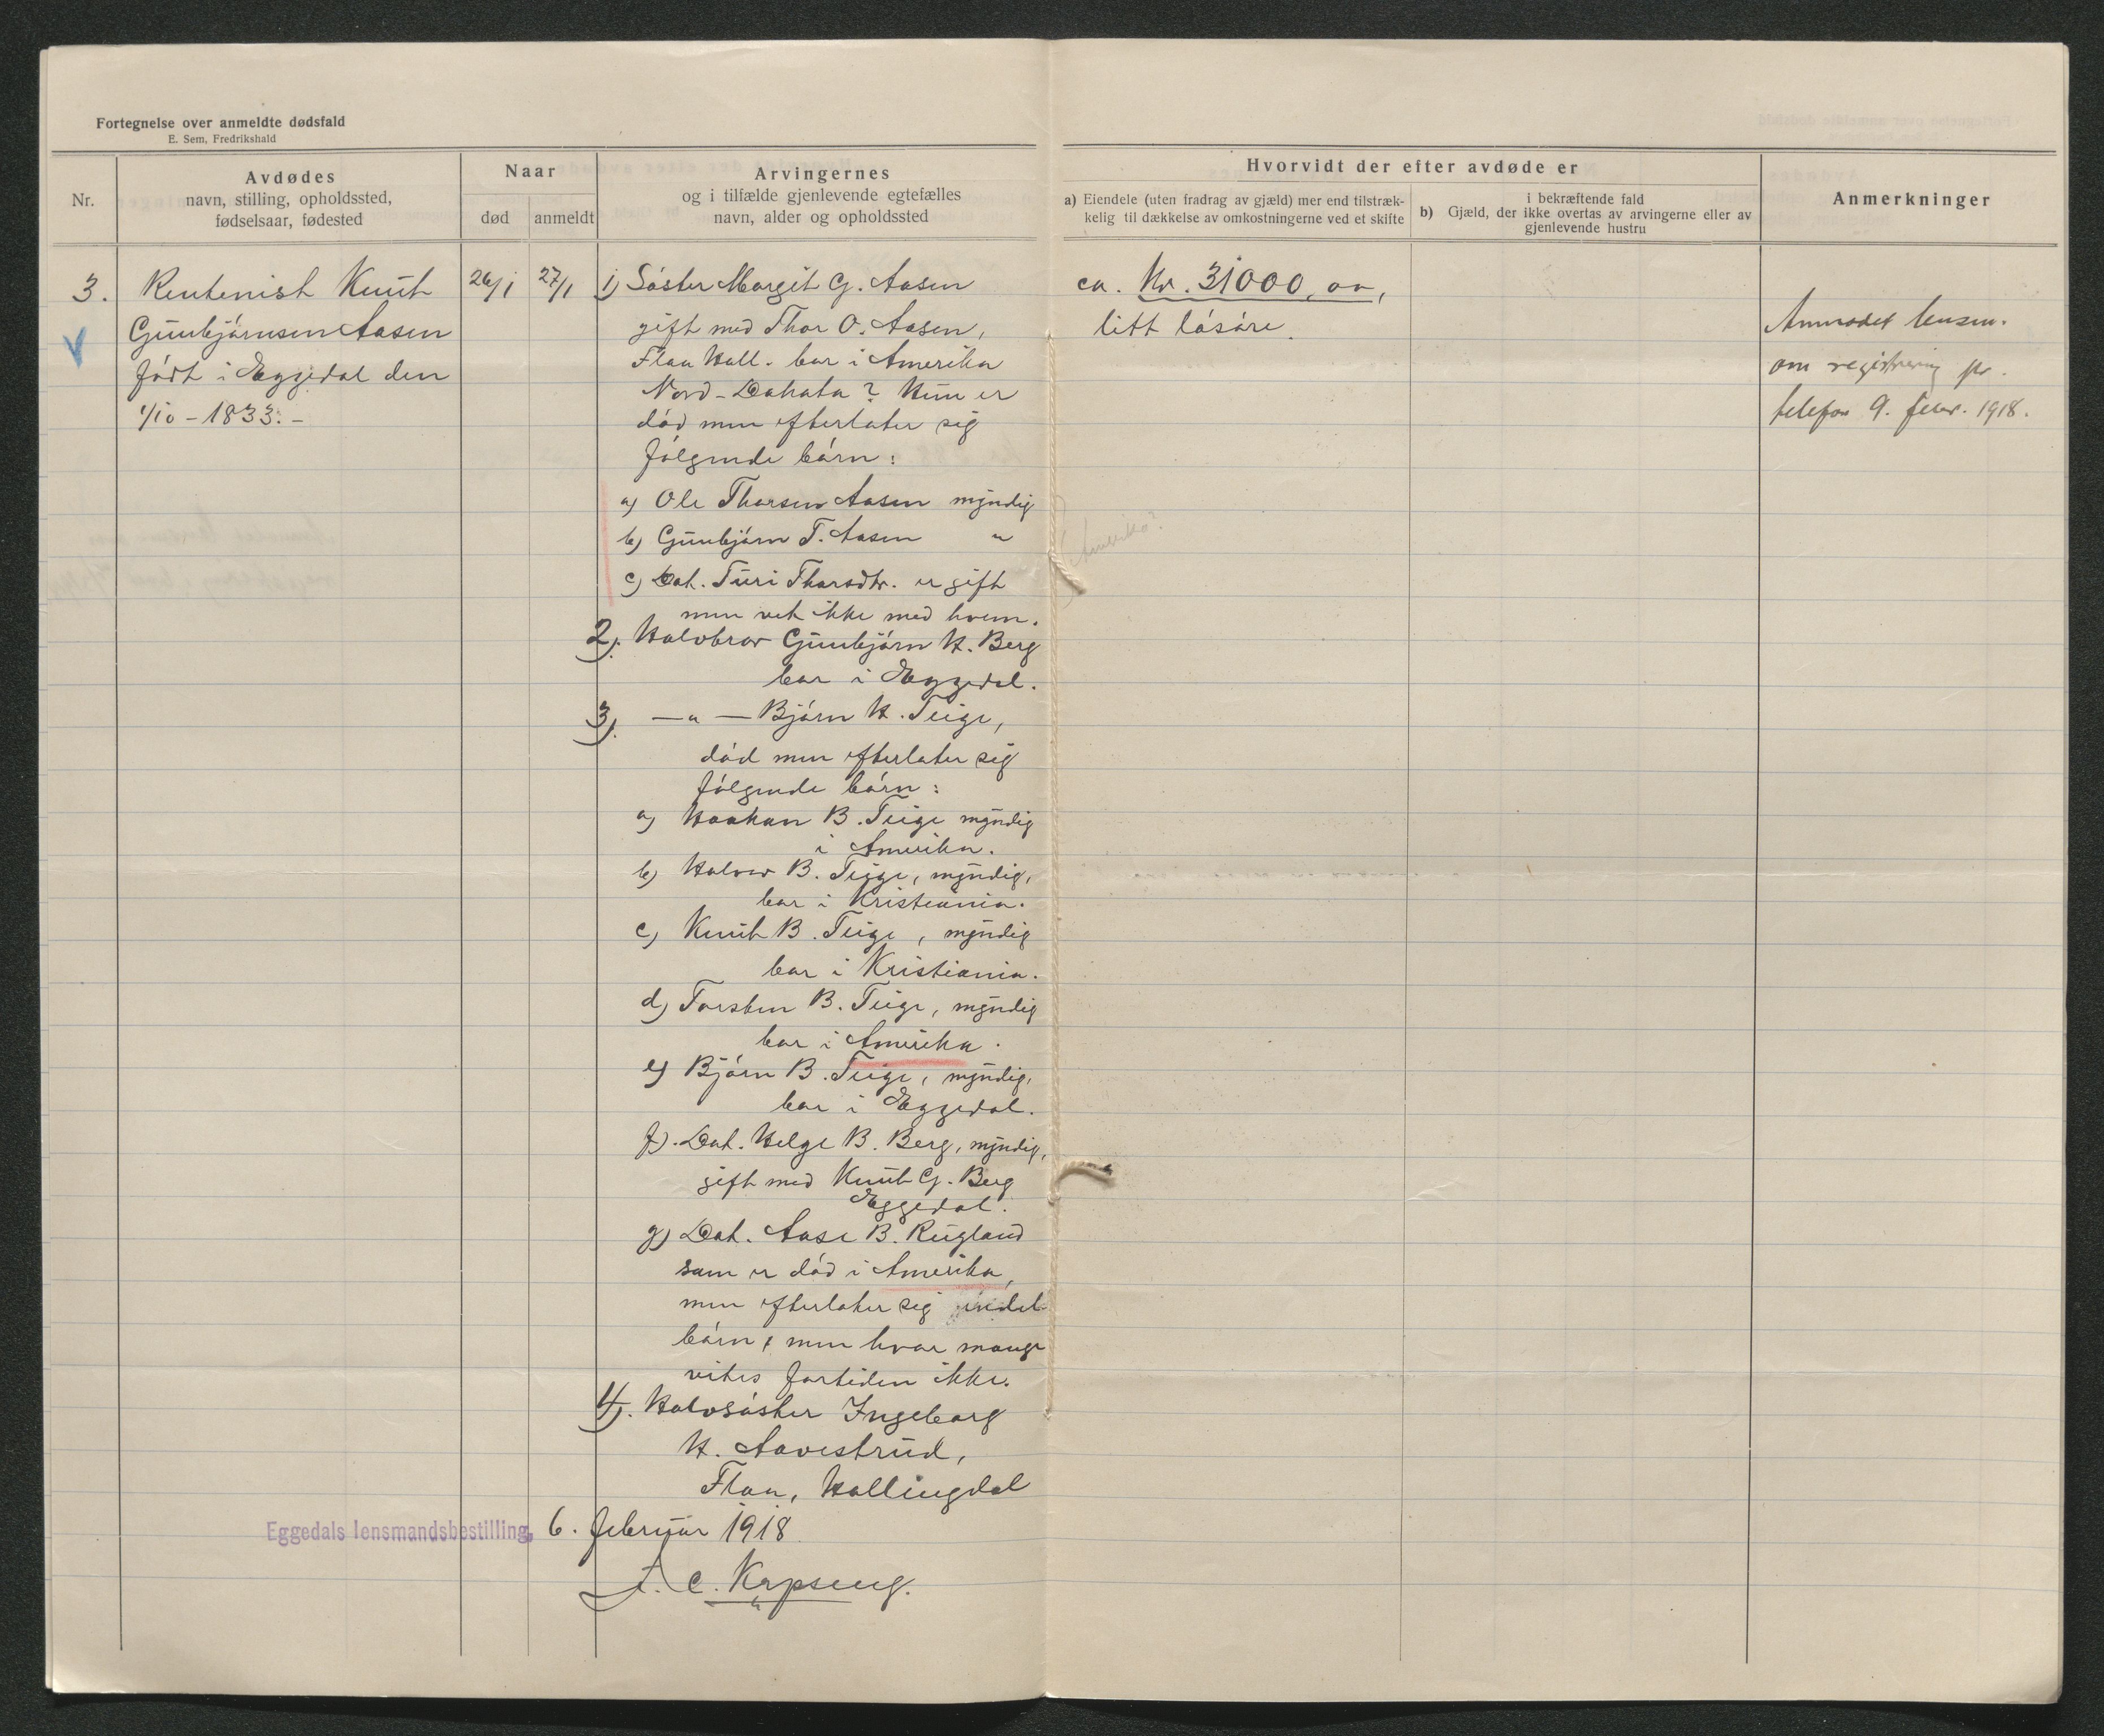 Fortegnelse over anmeldte dødsfald
E. Sem, Fredrikshald
Nr.
Avdødes
navn, stilling, opholdssted,
fødselsaar, fødested
Naar
død
anmeldt
Arvingernes
og i tilfælde gjenlevende egtefælles
navn, alder og opholdssted
Hvorvidt der efter avdøde er
a) Eiendele (uten fradrag av gjæld) mer end tilstræk-
kelig til dækkelse av omkostningerne ved et skifte
b) Gjæld, der i bekræftende fald
ikke overtas av arvingerne eller av
gjenlevende hustru
Anmerkninger
3.
Rentenist Knut
Gunbjørnsen Aasen
født i Eggedal den
1/10 - 1833. -
26/1
27/1
1) Søster Margit G. Aasen
gift med Thor O. Aasen,
Flaa Hall. bor i Amerika
Nord-Dakata? Hun er
død men efterlater sig
følgende børn:
a) Ole Thorsen Aasen myndig
b) Gunbjørn T. Aasen "
c) Dat. Turi Thorsdtr. er gift
men vet ikke med hvem.
2). Halvbror Gunbjørn H. Berg
bor i Eggedal.
3). — " — Bjørn H. Teige,
død men efterlater sig
følgende børn:
a) Haakon B. Teige myndig
i Amerika.
b) Halvor B. Teige, myndig,
bor i Kristiania.
c) Knut B. Teige, myndig
bor i Kristiania.
d) Torsten B. Teige, myndig
bor i Amerika.
e) Bjørn B. Teige, myndig,
bor i Eggedal.
f). Dat. Helge B. Berg, myndig,
gift med Knut G. Berg
Eggedal.
g) Dat. Aase B. Rugland
som er død i Amerika,
men efterlater sig endel
børn, men hvor mange
vites fortiden ikke.
4). Halvsøster Ingeborg
H. Aavestrud,
Flaa, Hallingdal
Eggedals lensmandsbestilling, 6. februar 1918
ca. Kr. 31000, oo,
litt løsøre.
Amerika?
Anmodet lensm.
om registrering pr.
telefon 9. febr. 1918.